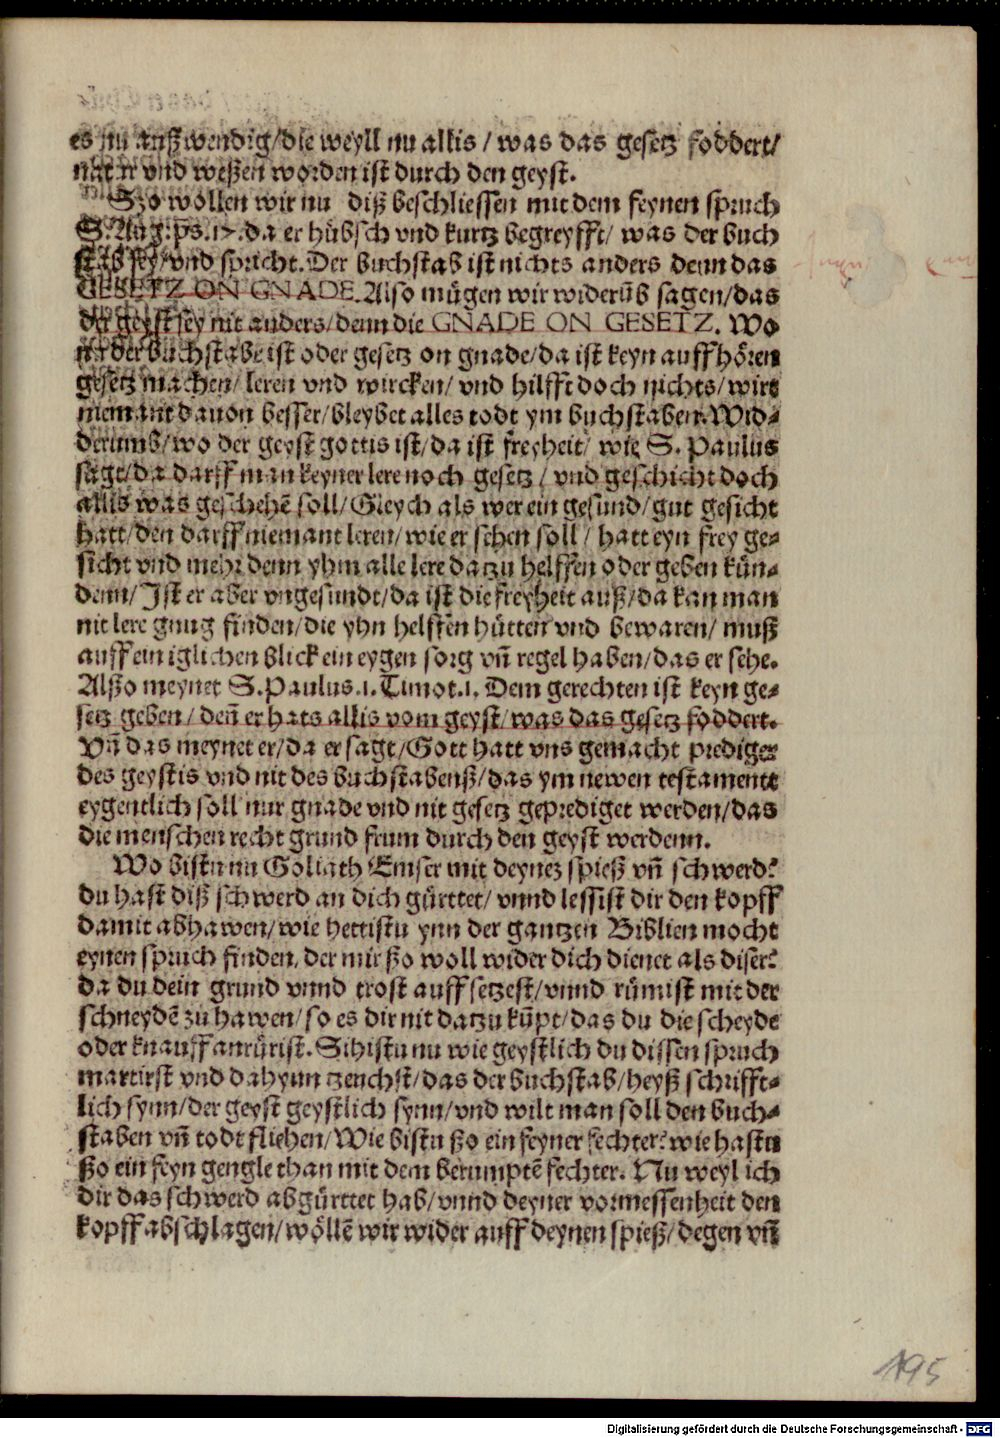 es nu außwendig/die weyll nu allis / was das gesetz foddert/
vnd weßen worden ist durch den geyst.
Szo wollen wir nu diß beschliessen mit dem feynen spruch
S. Aug: ps. 17. da er hübsch vnd kurtz begreyfft/ was der buch
stab sey/vnd spricht. Der buchstab ist nichts anders denn das
GESETZ ON GNADE. Also mügen wir widerũb sagen/das
der geyst sey nit anders/denn die GNADE ON GESETZ. Wo
nu der buchstabe ist oder gesetz on gnade/da ist keyn auffhören
gesetz machen/ leren vnd wircken/ vnd hilfft doch nichts/wirt
niemant dauon besser/bleybet alles todt ym buchstaben. Wid-
derumb/wo der geyst gottis ist/da ist freyheit/ wie S. Paulus
sagt/da darff man keyner lere noch gesetz / vnd geschicht doch
allis was geschehẽ soll/Gleych als wer ein gesund/gut gesicht
hatt/den darff niemant leren/wie er sehen soll / hatt eyn frey ge-
sicht vnd mehr denn yhm alle lere datzu helffen oder geben kün-
denn/Ist er aber vngesundt/da ist die freyheit auß/da kan man
nit lere gnug finden/die yhn helffen hütten vnd bewaren/ muß
auff ein iglichen blick ein eygen sorg vñ regel haben/das er sehe.
Alßo meynet S. Paulus. 1. Timot. 1. Dem gerechten ist keyn ge-
setz geben/ deñ er hats allis vom geyst/was das gesetz foddert.
Vñ das meynet er/da er sagt/Gott hatt vns gemacht prediger
des geystis vnd nit des buchstabenß/das ym newen testamentt
eygentlich soll nur gnade vnd nit gesetz geprediget werden/das
die menschen recht grund frum durch den geyst werdenn.
Wo bistu nu Goliath Emser mit deynez spieß vñ schwerd?
du hast diß schwerd an dich gürttet/ vnnd lessist dir den kopff
damit abhawen/wie hettistu ynn der gantzen Biblien mocht
eynen spruch finden, der mir ßo woll wider dich dienet als diser?
da du dein grund vnnd trost auff setzest/vnnd rümist mit der
schneydẽ zu hawen/so es dir nit datzu kũpt/das du die scheyde
oder knauff anrürist. Sihistu nu wie geystlich du dissen spruch
martirst vnd dahynn tzeuchst/das der buchstab/heyß schrifft-
lich synn/der geyst geystlich synn/vnd wilt man soll den buch-
staben vñ todt fliehen/Wie bistu ßo ein feyner fechter? wie hastu
ßo ein feyn gengle than mit dem berumptẽ fechter. Nu weyl ich
dir das schwerd abgürttet hab/vnnd deyner vormessenheit den
kopff abschlagen/wöllẽ wir wider auff deynen spieß/degen vñ
195
Digitalisierung gefördert durch die Deutsche Forschungsgemeinschaft - DFG